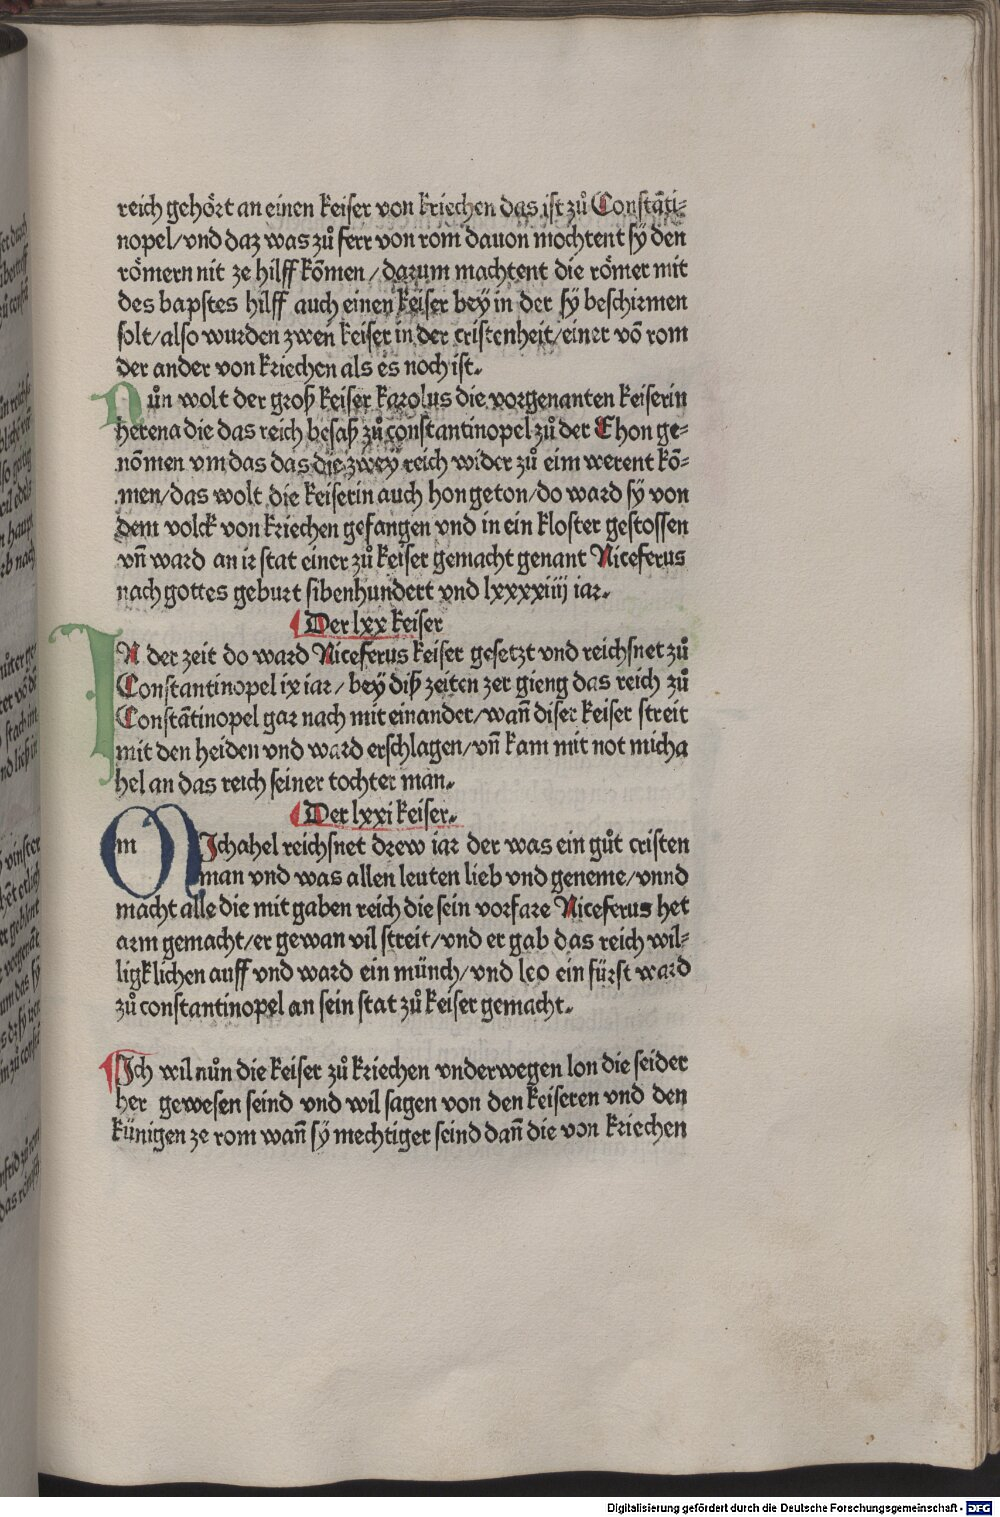 reich gehört an einen keiser von kriechen das ist zů Constāti⸗
nopel/vnd daz was zů ferr von rom dauon mochtent sÿ den
römern nit ze hilff kōmen/darum machtent die römer mit
des bapstes hilff auch einen keiser beÿ in der sÿ beschirmen
solt/also wurden zwen keiser in der cristenheit/einer vō rom
der ander von kriechen als es noch ist.
Nůn wolt der groß keiser karolus die vorgenanten keiserin
herena die das reich besaß zů constantinopel zů der Ehon ge⸗
nōmen vm das das die zweÿ reich wider zů eim werent kō⸗
men/das wolt die keiserin auch hon geton/do ward sÿ von
dem volck von kriechen gefangen vnd in ein kloster gestossen
vn̄ ward an ir stat einer zů keiser gemacht genant Niceferus
nach gottes geburt sibenhundert vnd lxxxxiiij iar.
Der lxx keiser
IN der zeit do ward Niceferus keiser gesetzt vnd reichsnet zů
Constantinopel ix iar/beÿ diß zeiten zer gieng das reich zů
Constātinopel gar nach mit einander/wan̄ diser keiser streit
mit den heiden vnd ward erschlagen/vn̄ kam mit not micha
hel an das reich seiner tochter man.
Der lxxi keiser.
MIchahel reichsnet drew iar der was ein gůt cristen
man vnd was allen leuten lieb vnd geneme/vnnd
macht alle die mit gaben reich die sein vorfare Niceferus het
arm gemacht/er gewan vil streit/vnd er gab das reich wil⸗
ligklichen auff vnd ward ein münch/vnd leo ein fürst ward
zů constantinopel an sein stat zů keiser gemacht.
Ich wil nůn die keiser zů kriechen vnderwegen lon die seider
her gewesen seind vnd wil sagen von den keiseren vnd den
künigen ze rom wan̄ sÿ mechtiger seind dan̄ die von kriechen
Digitalisierung gefördert durch die Deutsche Forschungsgemeinschaft - DFG